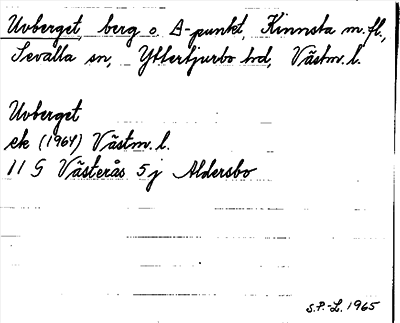 Uvberget, berg o. Δ-punkt, Kinnsta m.fl.,
Sevalla sn, Yttertjurbo hd, Västm. l.
Uvberget
ek (1964) Västm. l.
11 G Västerås 5j Aldersbo
S.P.-L. 1965